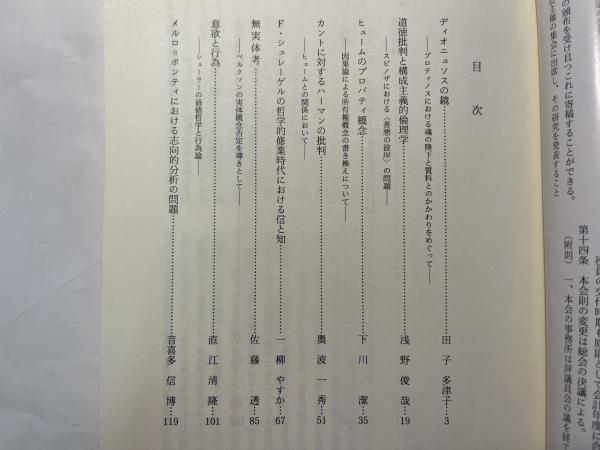 の頒布を受け且つこれに寄稿することができる。
主催の集会に出席し、その研究を発表すること
第十四条　本会則の変更は総会の決議による。
(附則)　一、本会の事務所は評議員会の議を経て
目次
ディオニュソスの鏡……田子多津子…3
――プロティノスにおける魂の降下と質料とのかかわりをめぐって――
道徳批判と構成主義的倫理学……浅野俊哉…19
――スピノザにおける〈善悪の彼岸〉の問題――
ヒュームのプロパティ概念……下川潔…35
――因果論による所有権概念の書き換えについて――
カントに対するハーマンの批判……奥波一秀…51
――ヒュームとの関係において――
F・シュレーゲルの哲学的修業時代における信と知……一柳やすか…67
無実体考……佐藤透…85
――ベルクソンの実体概念否定を導きとして――
意欲と行為……直江清隆…101
――シェーラーの価値哲学と行為論――
メルロ＝ポンティにおける志向的分析の問題……音喜多信博…119